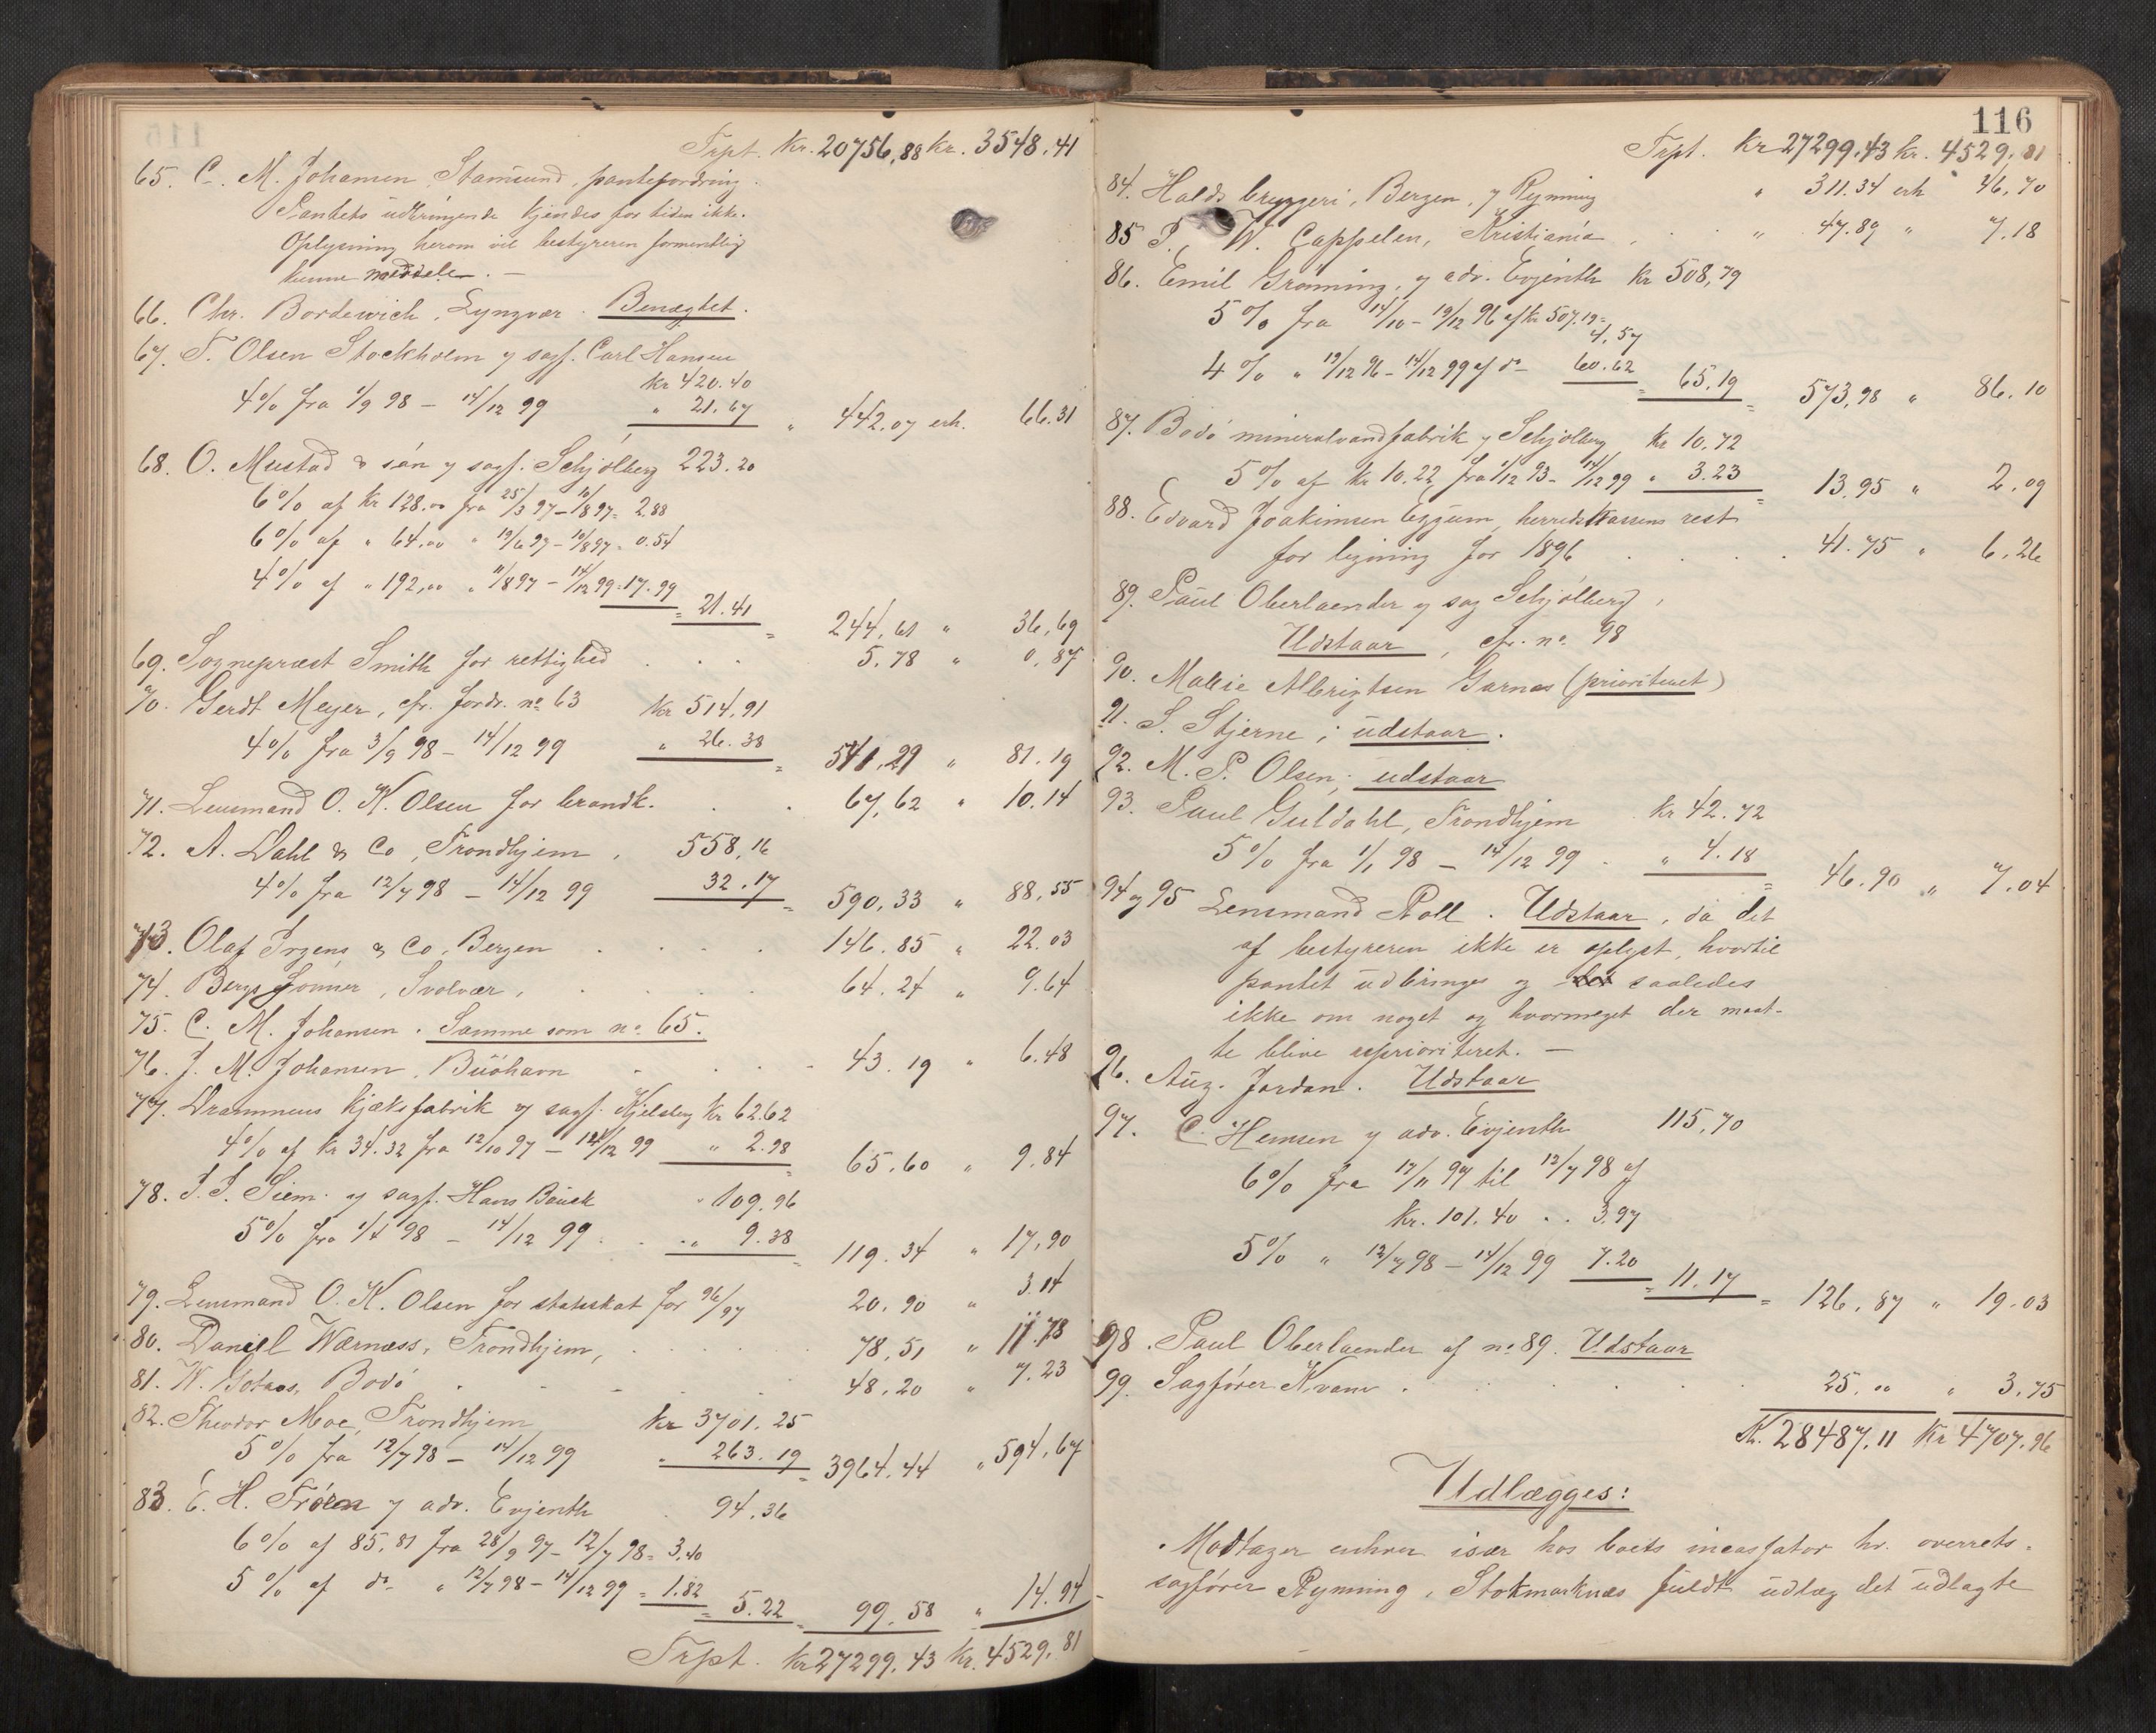 Trpt. Kr. 20756,88 Kr. 3548.41
65. C. M. Johansen, Stamsund, pantefordring.
Pantets udbringende kjendes for tiden ikke.
Oplysning herom vil bestyreren formentlig
kunne meddele. —
66. Chr. Bordewich, Lyngvær. Benægtet.
67. T. Olsen Stockholm v sagf. Carl Hansen
kr 420.40
4% fra 1/9 98 – 14/12 99 " 21.67 " 442.07 erh. 66.31
68. O. Mustad & søn v sagf. Schjölberg 223.20
6% af kr 128.00 fra 25/3 97 – 10/8 97 = 2.88
6% af " 64,00 " 19/6 97 – 10/8 97 = 0.54
4% af " 192,00 " 11/8 97 – 14/12 99 = 17.99
= 21.41 = 244,61 " 36,69
69. Sognepræst Smith for rettighed . . . 5.78 " 0,87
70. Gerdt Meyer, cfr. fordr. no 63 Kr 514,91
4% fra 3/9 98 – 14/12 99 " 26.38 = 541,29 " 81.19
71. Lensmand O. K. Olsen for brandk. . . 67,62 " 10.14
72. A. Dahl & Co, Trondhjem, 558,16
4% fra 12/7 98 – 14/12 99 32.17 = 590,33 " 88,55
73. Olaf Irgens & Co, Bergen . . . . 146.85 " 22.03
74. Bergs Sönner, Svolvær, . . . . 64.24 " 9.64
75. C. M. Johansen. Samme som no 65.
76. J. M. Johansen, Buöhavn . . . . 43.19 " 6.48
77. Drammens kjæksfabrik v sagf. Kjelsberg Kr 62.62
4% af kr 34.32 fra 12/10 97 – 14/12 99 " 2.98 = 65.60 " 9.84
78. J. J. Siem v sagf. Hans Bauck " 109.96
5% fra 1/4 98 – 14/12 99 . . " 9.38 = 119.34 " 17,90
79. Lensmand O. K. Olsen for statsskat for 96/97 20.90 " 3.14
80. Daniel Wærnæss, Trondhjem, . . . . . 78,51 " 11.78
81. W. Gotaas, Bodö . . . . . 48.20 " 7.23
82. Theodor Moe, Trondhjem kr 3701.25
5% fra 12/7 98 – 14/12 99 " 263.19 = 3964.44 " 594,67
83. E. H. Fröen v adv. Evjenth 94.36
6% af 85.81 fra 28/9 97 – 12/7 98 = 3,40
5% af do " 12/7 98 – 14/12 99 = 1.82 = 5.22 = 99.58 " 14.94
Trpt. Kr 27299.43 Kr. 4529.81
116
Trpt. Kr 27299.43 kr. 4529,81
84. Halds bryggeri, Bergen, v Rynning " 311.34 erh 46,70
85 P. W. Cappelen, Kristiania . . . " 47.89 " 7.18
86. Emil Grönning, v adv. Evjenth Kr 508,79
5% fra 14/10 – 19/12 96 af kr 507.19 =
4,57
4% " 19/12 96 – 14/12 99 af do 60.62 = 65,19 = 573,98 " 86.10
87. Bodö mineralvandfabrik v Schjölberg Kr 10.72
5% af kr 10.22 fra 1/12 93 – 14/12 99 " 3.23 = 13.95 " 2.09
88. Edvard Joakimsen Eggum, herredskassens rest
for ligning for 1896 . . . . 41.75 " 6.26
89. Paul Oberlaender v sag Schjölberg,
Udstaar, cfr. no. 98
90. Mallie Albrigtsen Garnæs (prioriteret)
91. S. Stjerne; udstaar.
92. M. P. Olsen; udstaar
93. Paul Guldahl, Trondhjem Kr 42.72
5% fra 1/1 98 – 14/12 99 . " 4.18 = 46.90 " 7.04
94 og 95 Lensmand Roll. Udstaar, da det
af bestyreren ikke er oplyst, hvortil
pantet udbringes og saaledes
ikke om noget og hvormeget der maat-
te blive uprioriteret. —
96. Aug. Jordan. Udstaar
97. C. Hemsen v adv. Evjenth 115,70
6% fra 17/11 97 til 12/7 98 af
Kr. 101.40 . . 3.97
5% " 12/7 98 – 14/12 99 7.20 = 11.17 = 126,87 " 19.03
98. Paul Oberlaender af no 89. Udstaar
99. Sagförer Kvam . . . . . 25,00 " 3,75
Kr. 28487.11 Kr 4707.96
Udlægges:
Modtager enhver især hos boets incassator hr. overrets-
sagförer Rynning, Stokmarknæs fuldt udlæg det udlagte